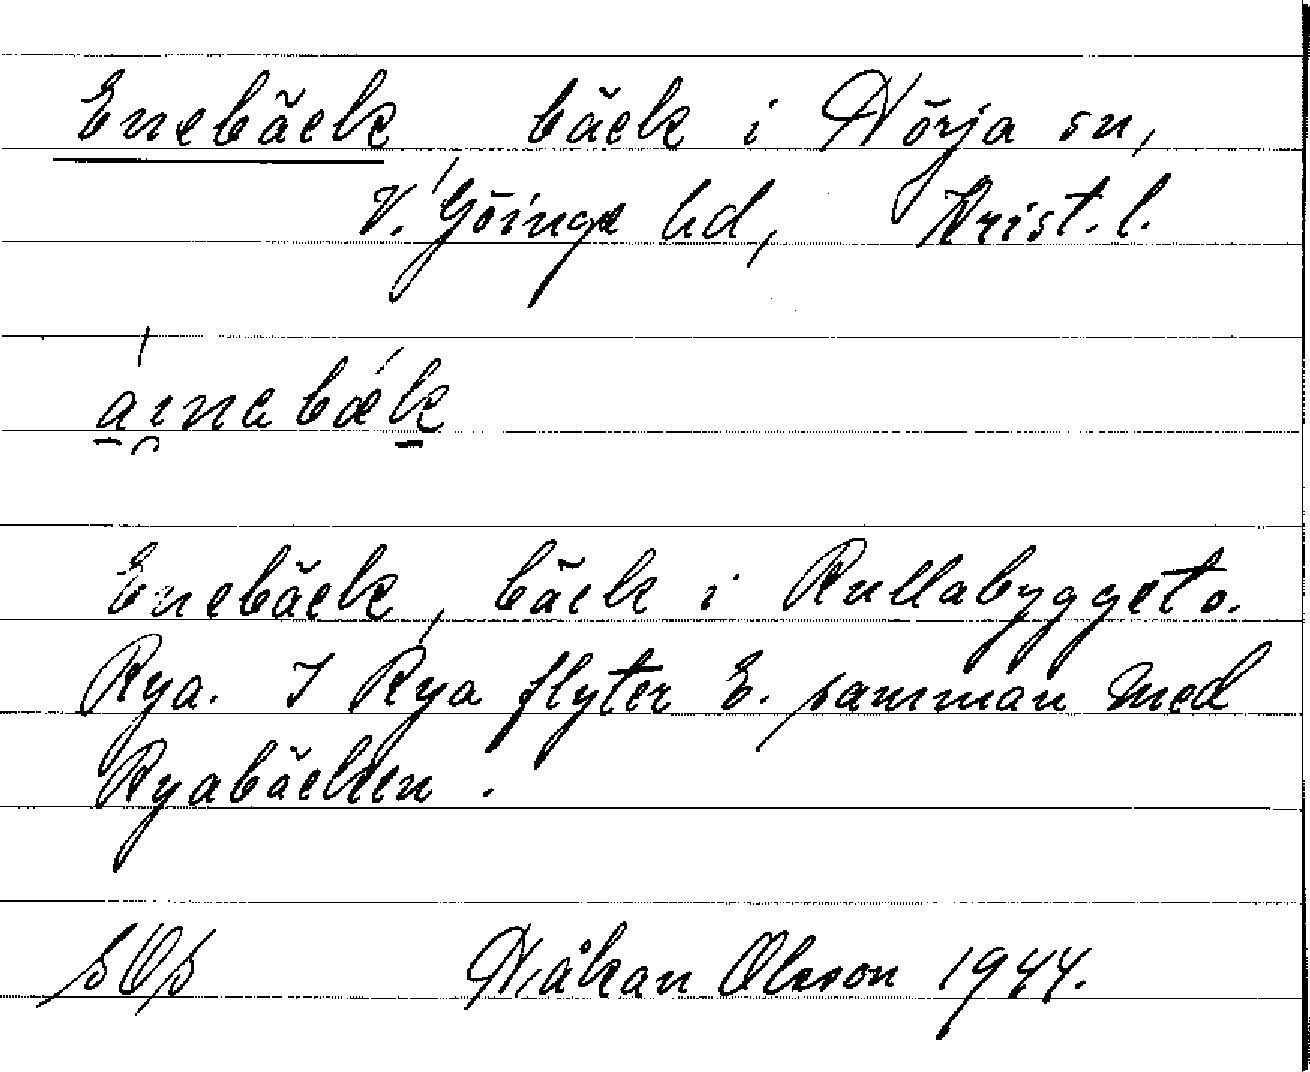 Enebäck bäck i Hörja sn,
V. Göinge hd, Krist. l.
áinabæ̀k
Enebäck, bäck i Rullabygget o.
Rya. I Rya flyter E. samman med
Ryabäcken.
Håkan Olsson 1944.